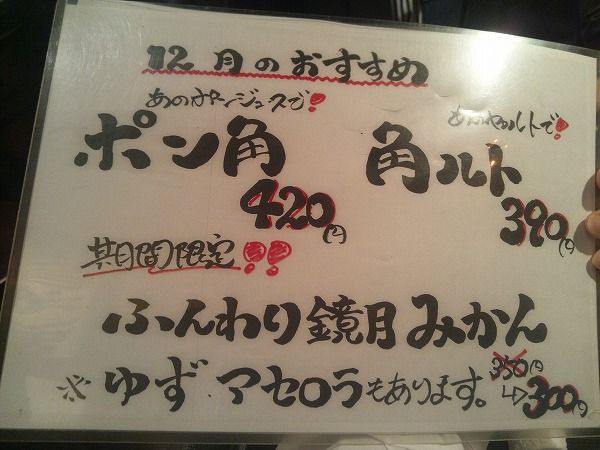 12月のおすすめ
あのみかんジュースで!
ポン角
420円
あのヤクルトで!
角ルト
390円
期間限定!!
ふんわり鏡月みかん
※ゆず アセロラもあります。
350円
↳300円